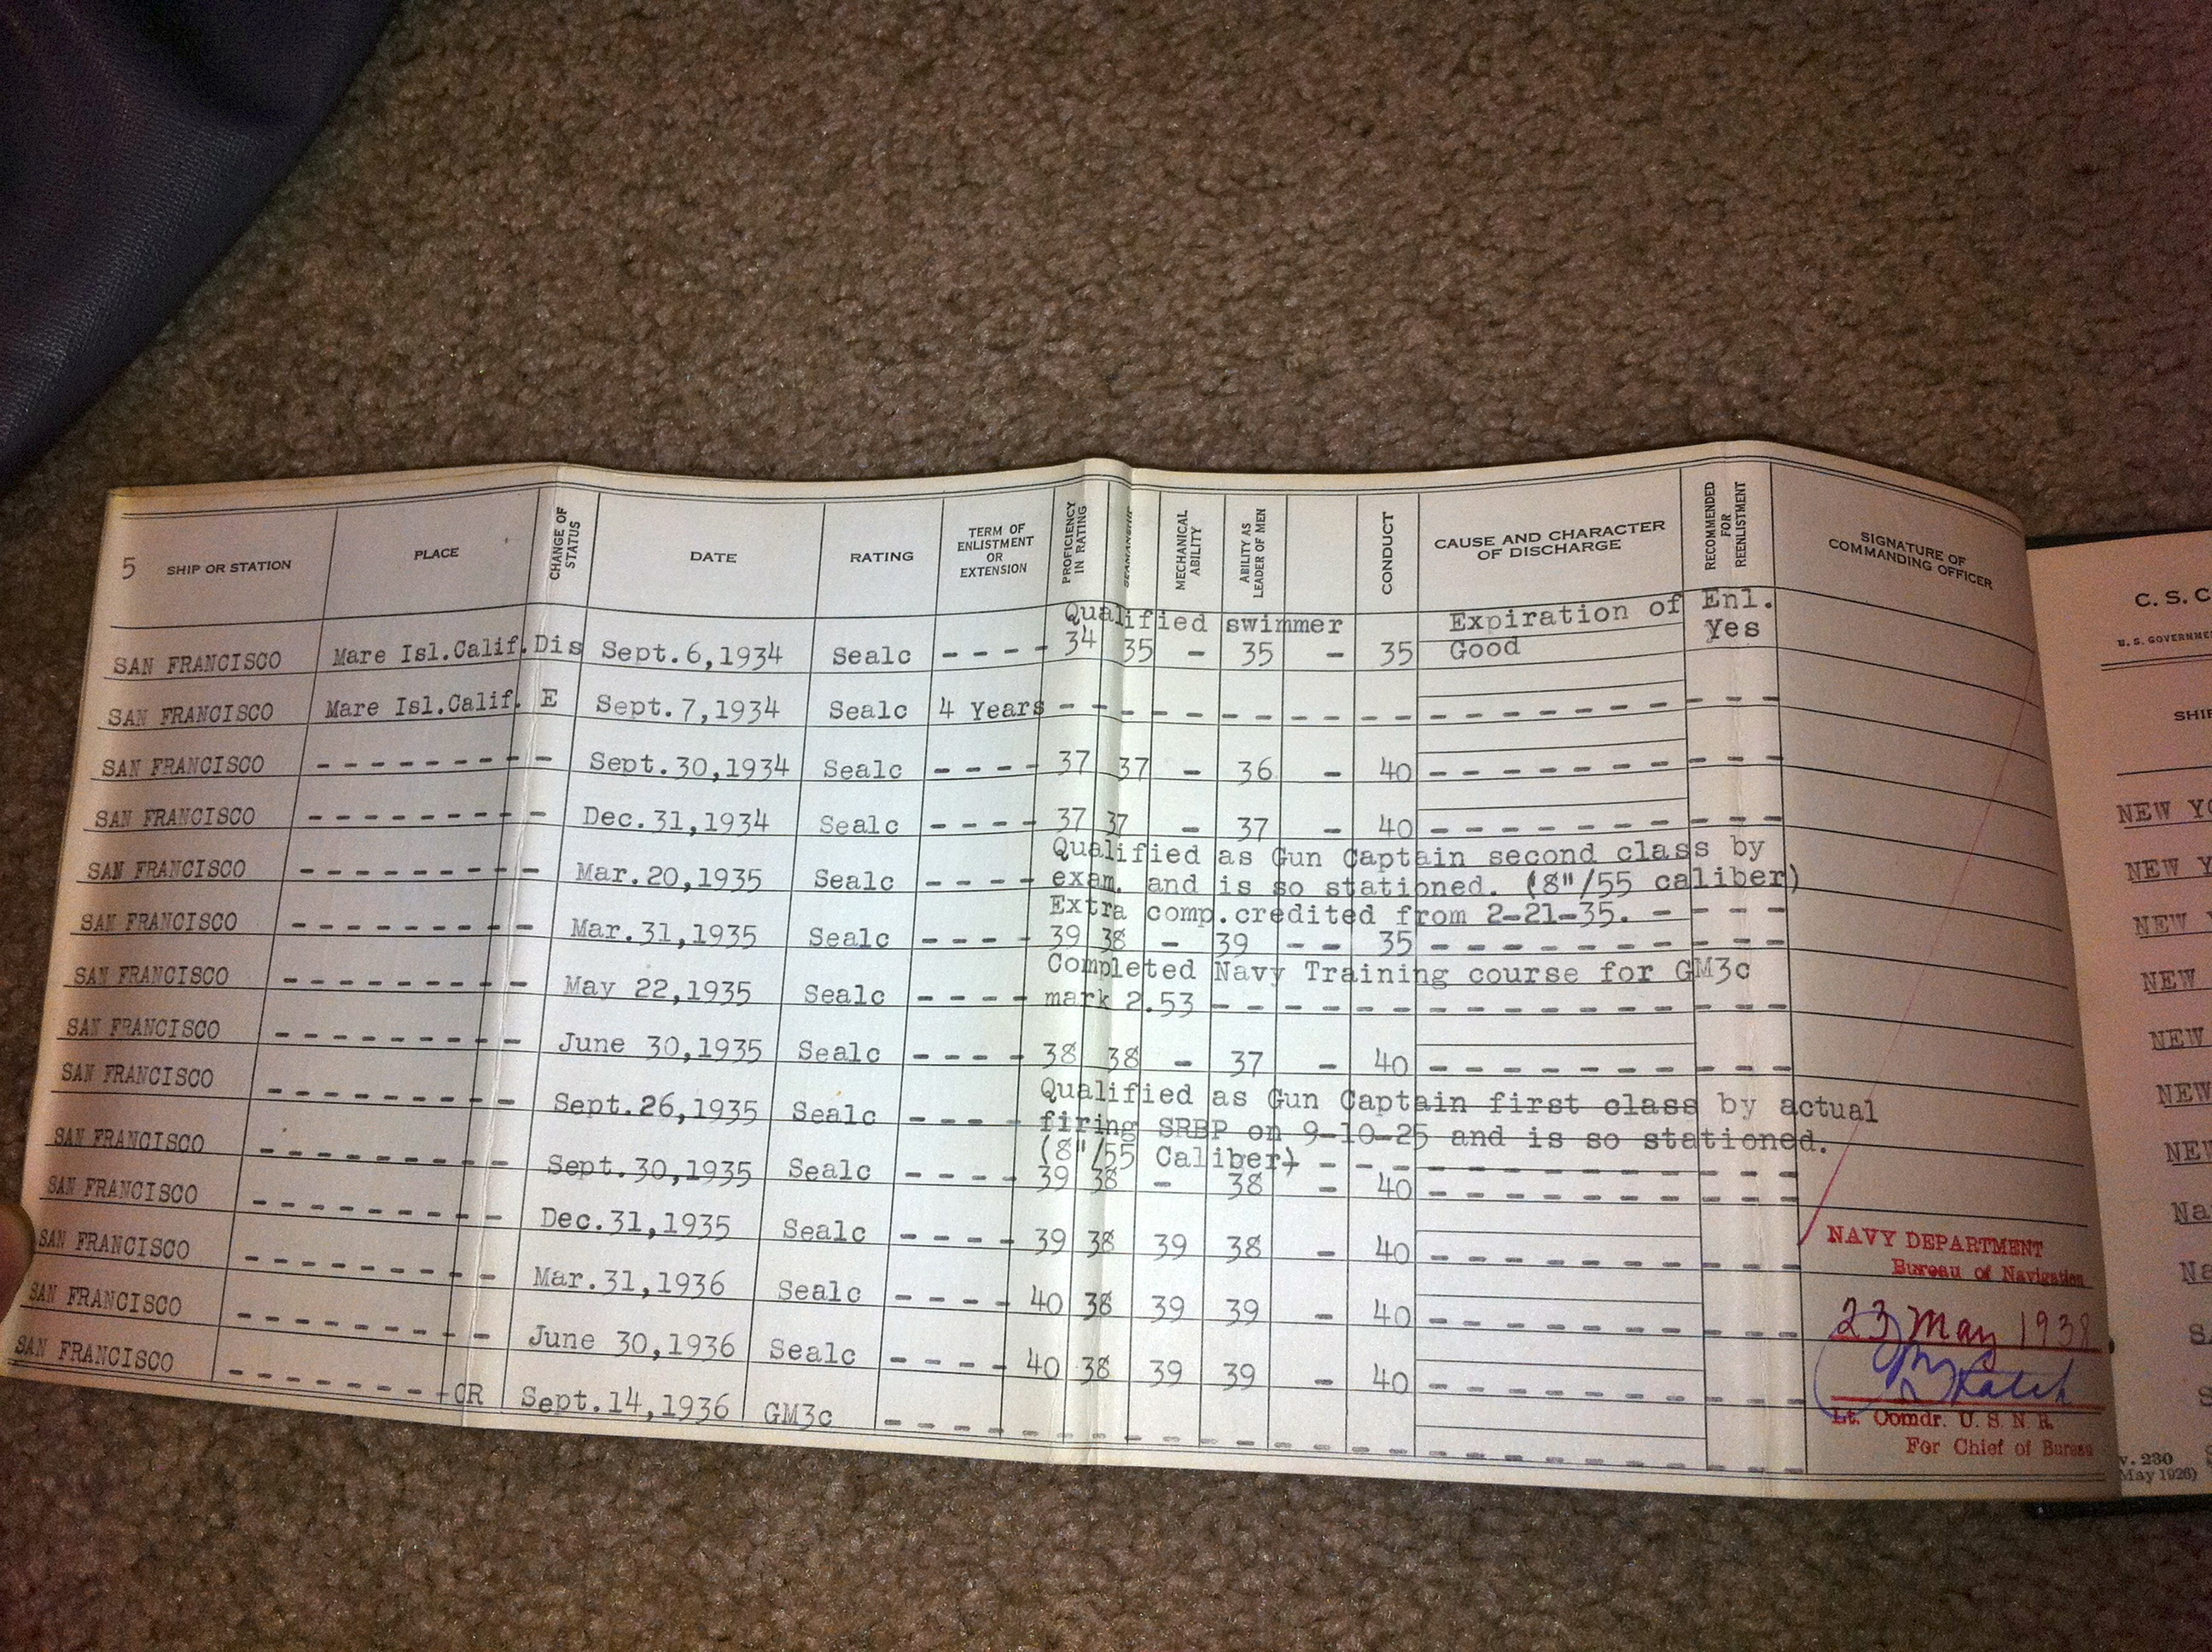 5 SHIP OR STATION PLACE CHANGE OF STATUS DATE RATING TERM OF ENLISTMENT OR EXTENSION PROFICIENCY IN RATING SEAMANSHIP MECHANICAL ABILITY ABILITY AS LEADER OF MEN CONDUCT CAUSE AND CHARACTER OF DISCHARGE RECOMMENDED FOR REENLISTMENT SIGNATURE OF COMMANDING OFFICER
Qualified swimmer Expiration of Enl.
SAN FRANCISCO Mare Isl.Calif. Dis Sept.6,1934 Sealc - - - - 34 35 - 35 - 35 Good Yes
SAN FRANCISCO Mare Isl.Calif. E Sept.7,1934 Sealc 4 Years - - - - - - - - - - - - - - - - - -
SAN FRANCISCO - - - - - - - - - - Sept.30,1934 Sealc - - - - 37 37 - 36 - 40 - - - - - - - - - - -
SAN FRANCISCO - - - - - - - - - - Dec.31,1934 Sealc - - - - 37 37 - 37 - 40 - - - - - - - - - - -
Qualified as Gun Captain second class by
SAN FRANCISCO - - - - - - - - - - Mar.20,1935 Sealc - - - - exam. and is so stationed. (8"/55 caliber)
Extra comp.credited from 2-21-35. - - - -
SAN FRANCISCO - - - - - - - - - - Mar.31,1935 Sealc - - - - 39 38 - 39 - - 35 - - - - - - - - - - -
Completed Navy Training course for GM3c
SAN FRANCISCO - - - - - - - - - - May 22,1935 Sealc - - - - mark 2.53 - - - - - - - - - - - - - - -
SAN FRANCISCO - - - - - - - - - - June 30,1935 Sealc - - - - 38 38 - 37 - 40 - - - - - - - - - - -
Qualified as Gun Captain first class by actual
SAN FRANCISCO - - - - - - - - - - Sept.26,1935 Sealc - - - - firing SRBP on 9-10-25 and is so stationed.
(8"/55 Caliber) - - - - - - - - - - - -
SAN FRANCISCO - - - - - - - - - - Sept.30,1935 Sealc - - - - 39 38 - 38 - 40 - - - - - - - - - - -
SAN FRANCISCO - - - - - - - - - - Dec.31,1935 Sealc - - - - 39 38 39 38 - 40 - - - - - - - - - - -
SAN FRANCISCO - - - - - - - - - - Mar.31,1936 Sealc - - - - 40 38 39 39 - 40 - - - - - - - - - - -
SAN FRANCISCO - - - - - - - - - - June 30,1936 Sealc - - - - 40 38 39 39 - 40 - - - - - - - - - - -
SAN FRANCISCO - - - - - - - - CR Sept.14,1936 GM3c - - - - - - - - - - - - - - - - - - - - - -
NAVY DEPARTMENT
Bureau of Navigation
23 May 1938
Lt. Comdr. U. S. N. R.
For Chief of Bureau
C. S. C
U. S. GOVERNME
SHIP
NEW YO
NEW Y
NEW
NEW
NEW
NEW
NEW
Na
Na
SA
S
v. 230
May 1926)